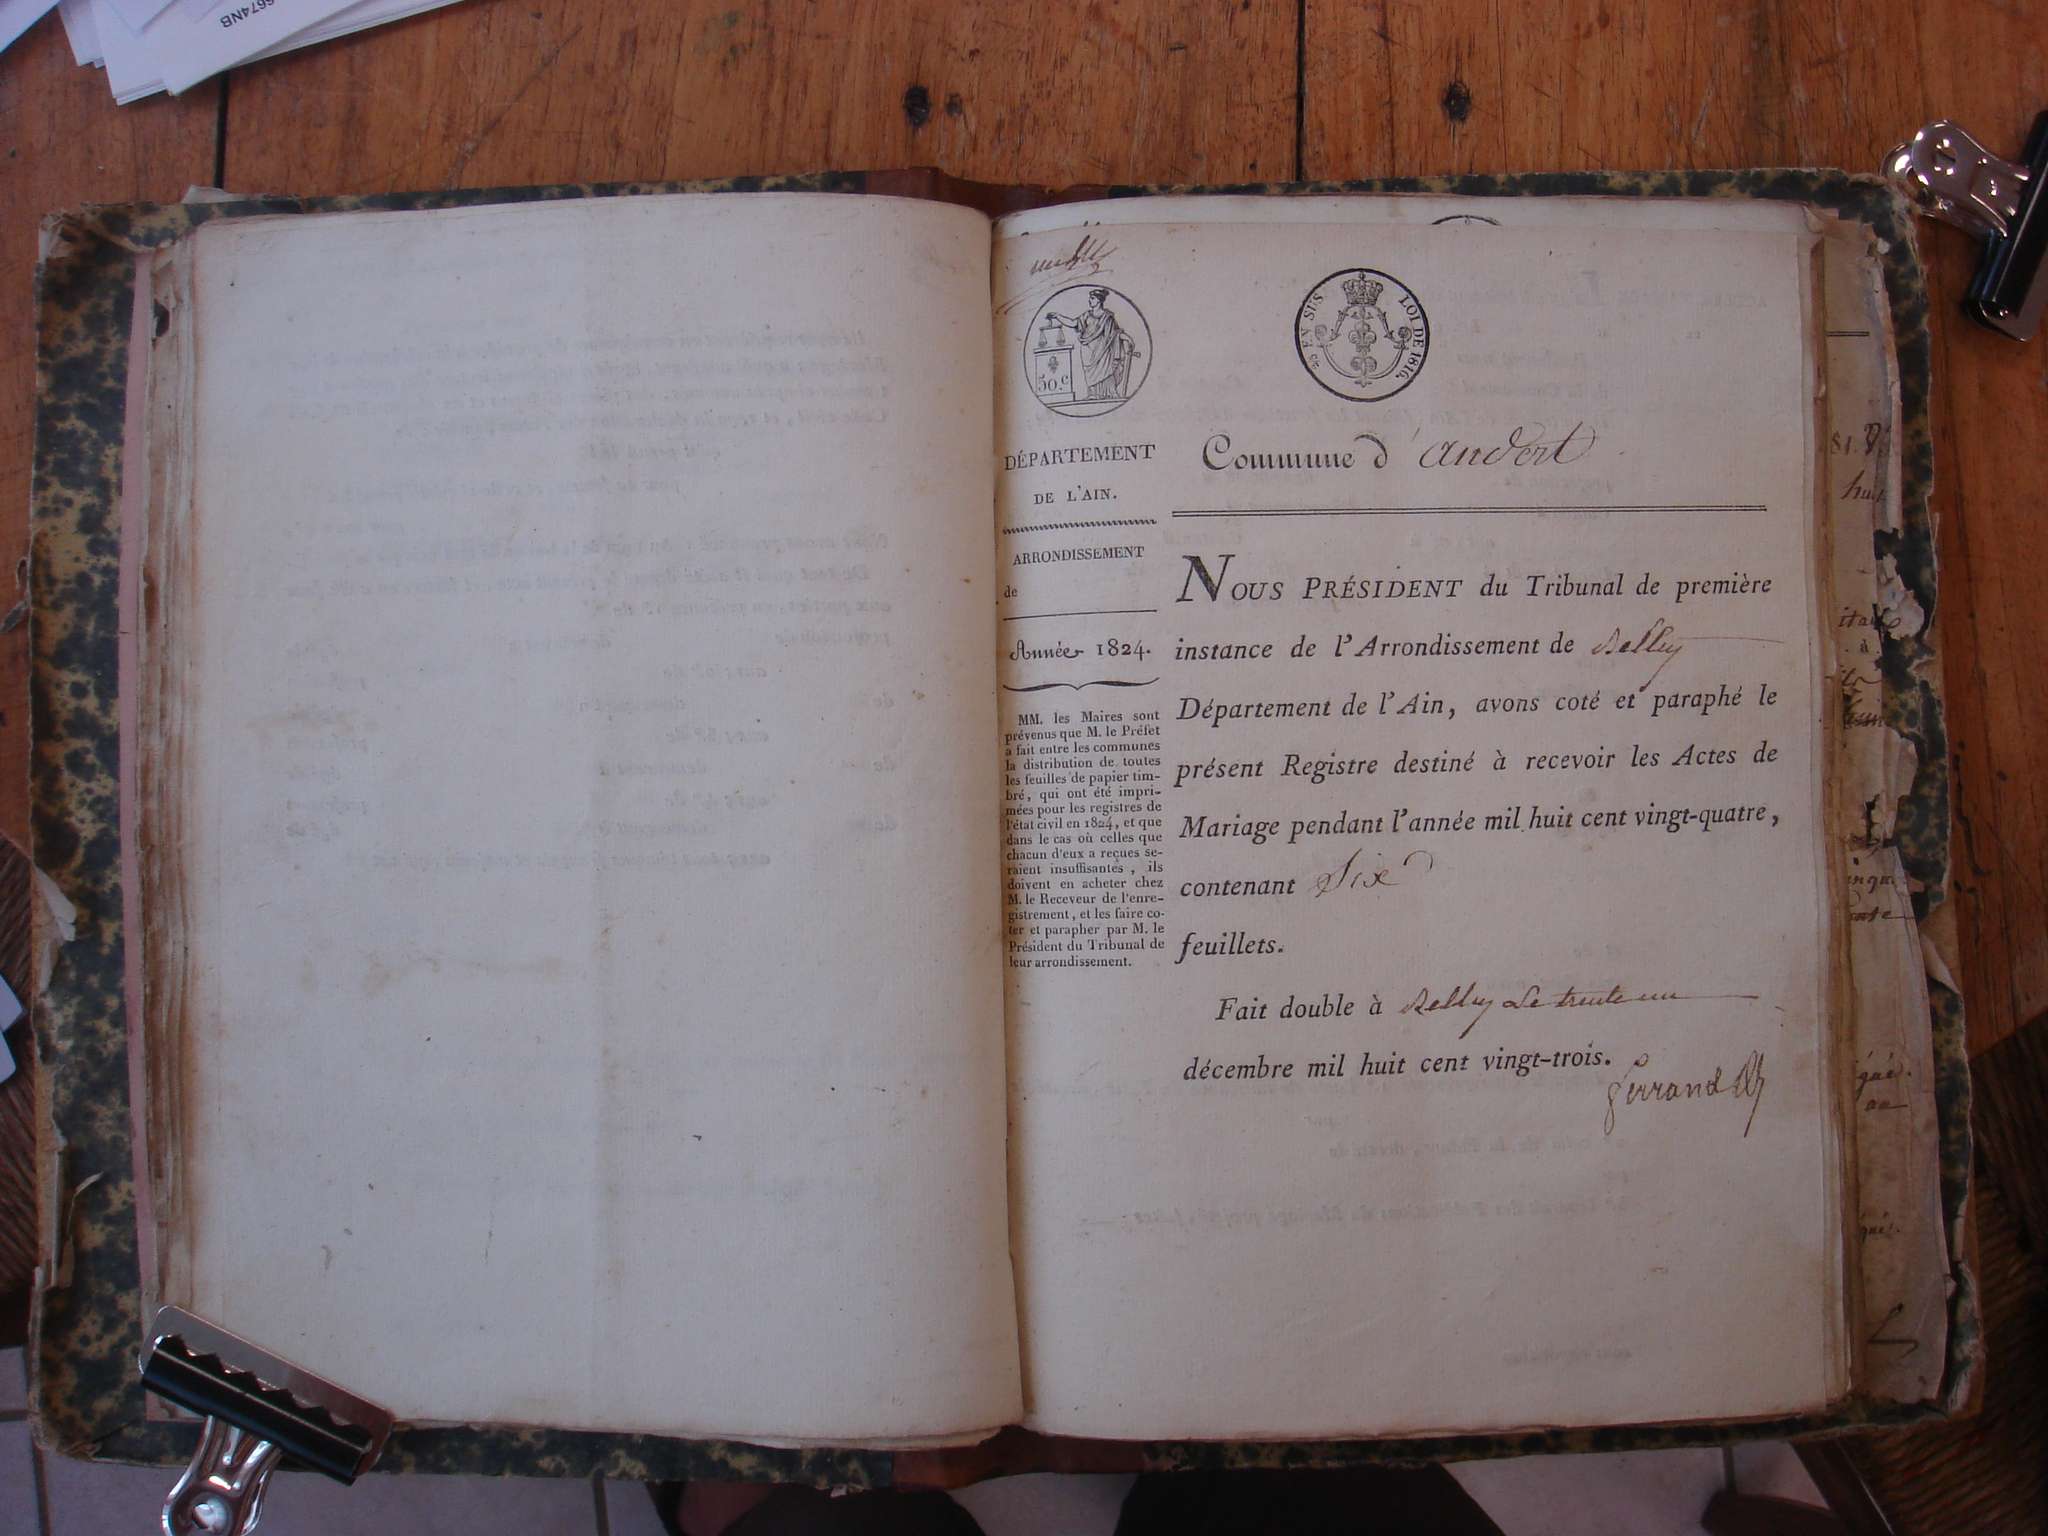 6674NB
50.c
EN SUS LOI DE 1816.
DÉPARTEMENT
DE L'AIN.
ARRONDISSEMENT
de
Année 1824.
MM. les Maires sont
prévenus que M. le Préfet
a fait entre les communes
la distribution de toutes
les feuilles de papier tim-
bré, qui ont été impri-
mées pour les registres de
l'état civil en 1824, et que
dans le cas où celles que
chacun d'eux a reçues se-
raient insuffisantes, ils
doivent en acheter chez
M. le Receveur de l'enre-
gistrement, et les faire co-
ter et parapher par M. le
Président du Tribunal de
leur arrondissement.
Commune d'andert
NOUS PRÉSIDENT du Tribunal de première
instance de l'Arrondissement de Belley
Département de l'Ain, avons coté et paraphé le
présent Registre destiné à recevoir les Actes de
Mariage pendant l'année mil huit cent vingt-quatre,
contenant Six
feuillets.
Fait double à Belley Le trente un
décembre mil huit cent vingt-trois.